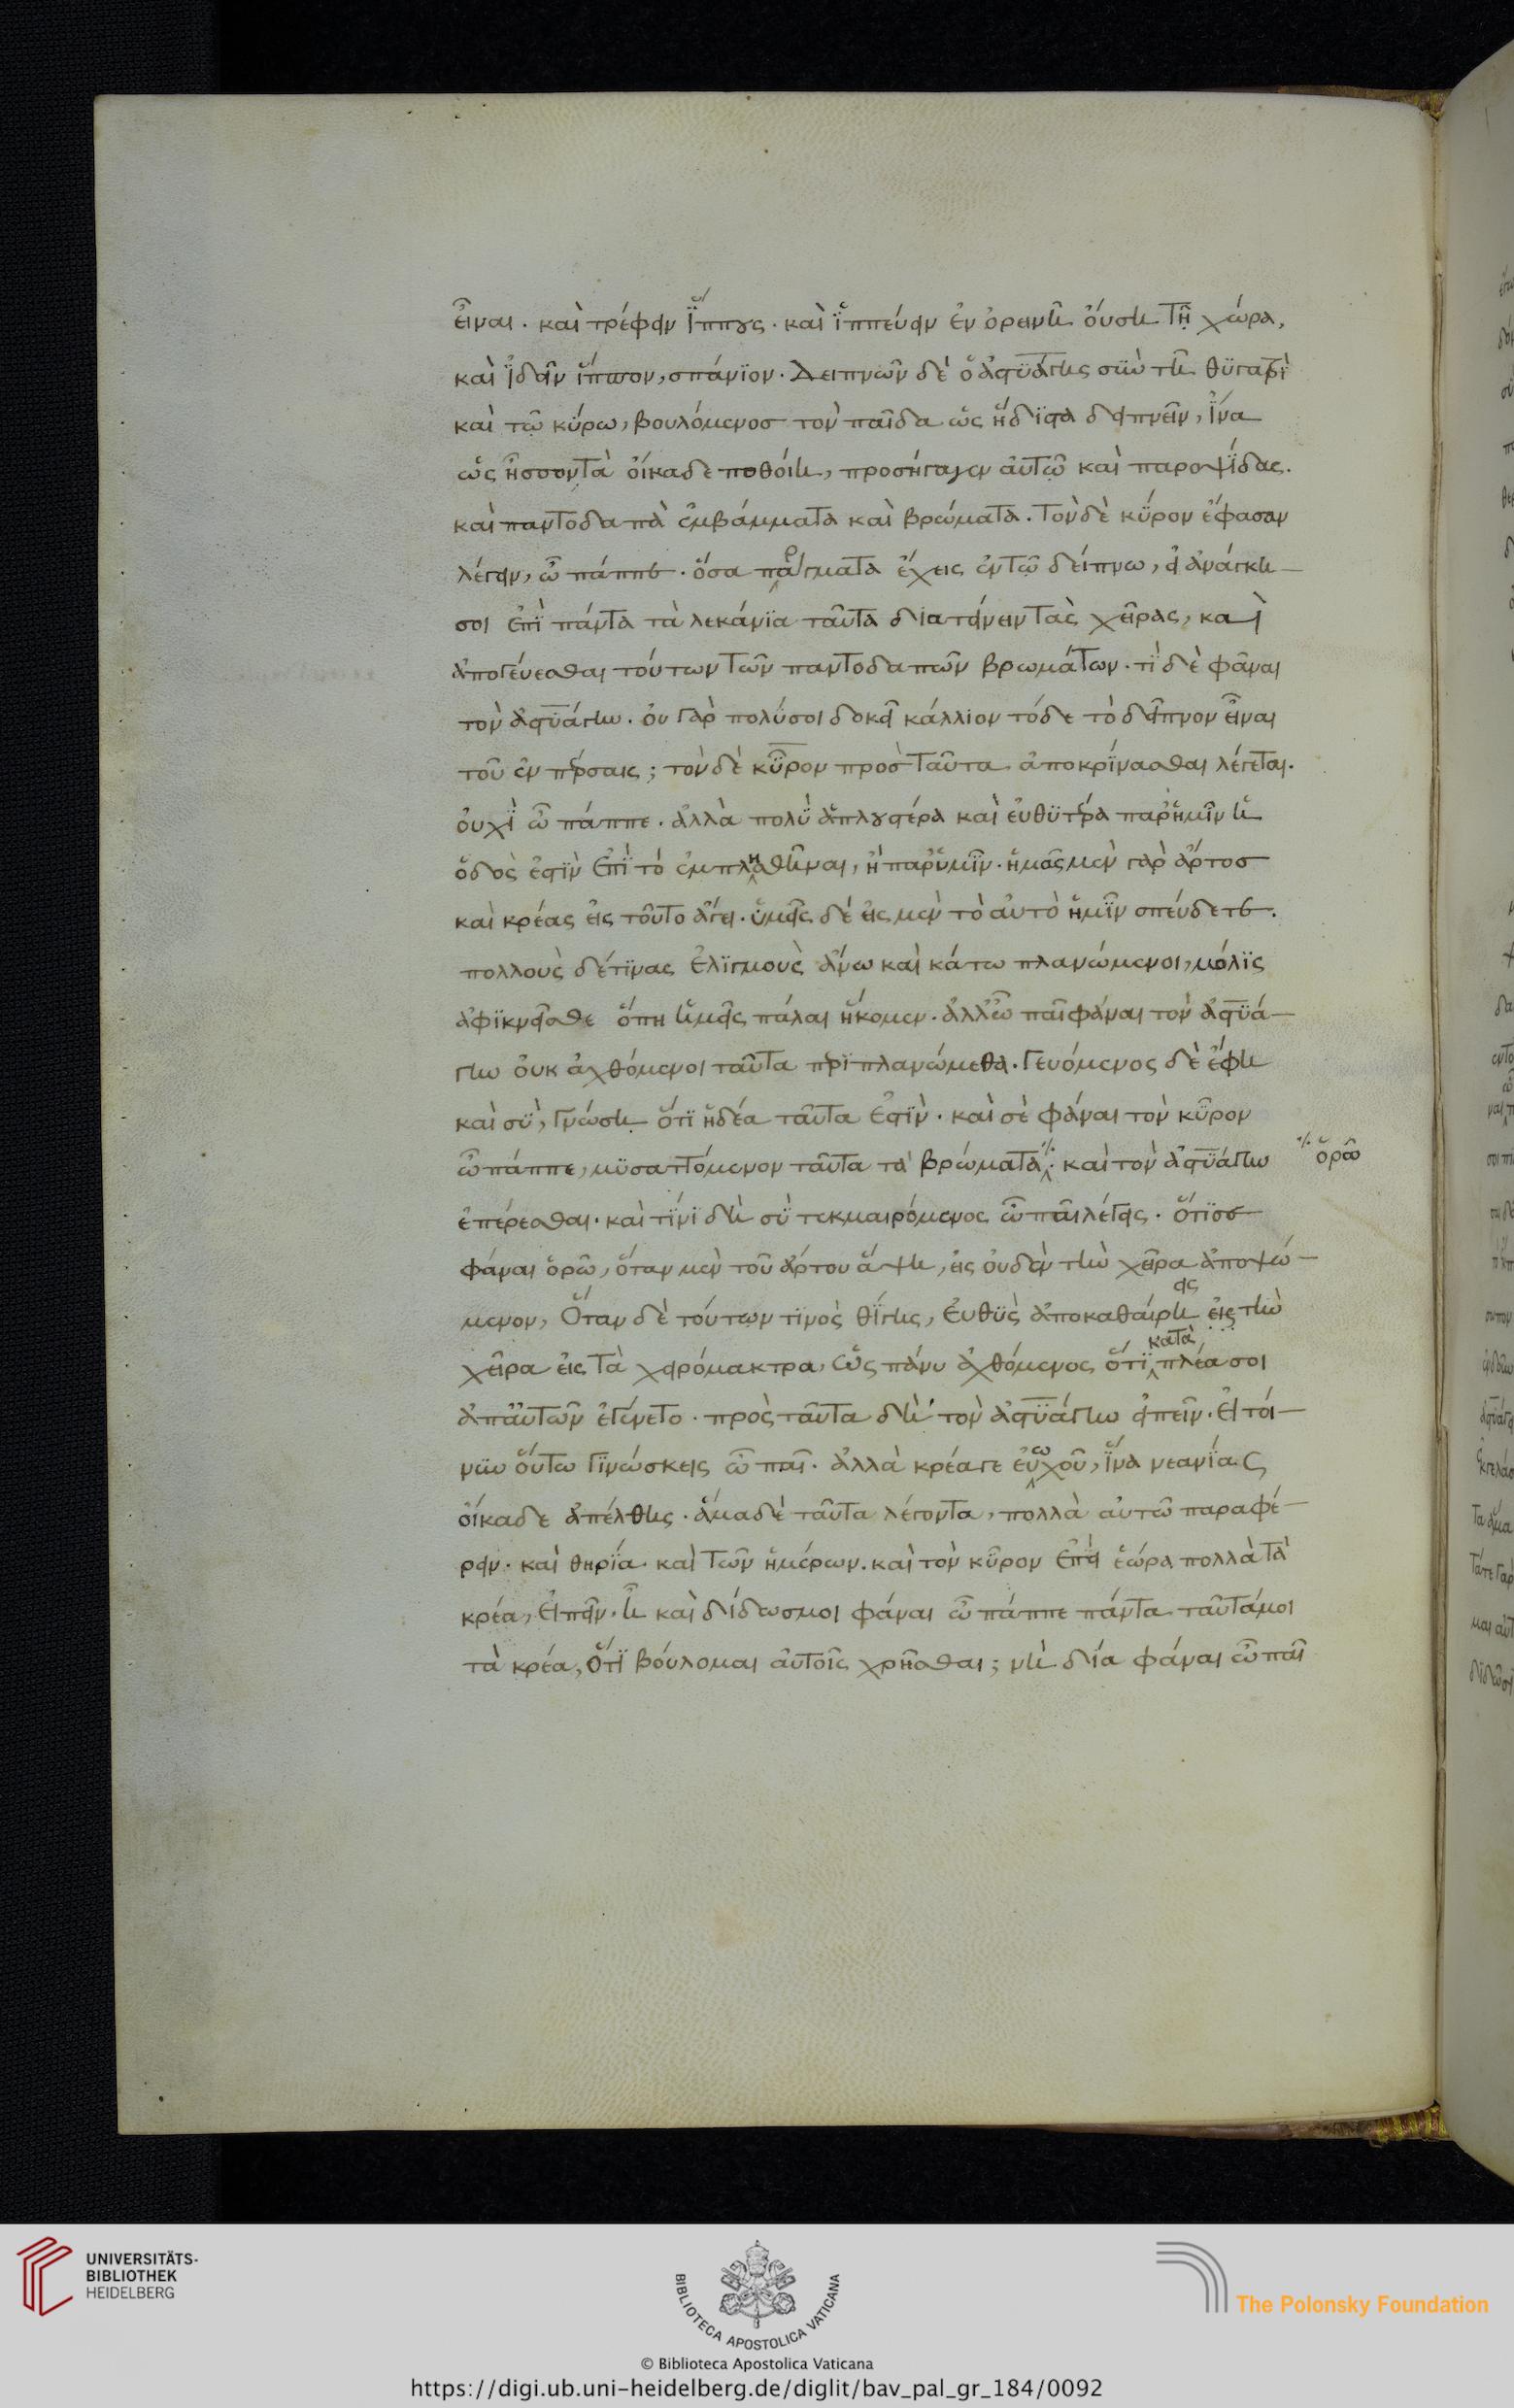 εἶναι. καὶ τρέφειν ἵππους. καὶ ἱππεύειν ἐν ὀρεινῆ οὔση τῆ χώρα,
καὶ ἰδεῖν ἵππον, σπάνιον. Δειπνῶν δὲ ὁ ἀστϋάγης σὺν τῆ θυγατρὶ
καὶ τῶ κύρω, βουλόμενος τὸν παῖδα ὡς ἥδιστα δειπνεῖν, ἵνα
ὡς ἧσσον τὰ οἴκαδε ποθοίη, προσήγαγεν αὐτῶ καὶ παροψίδας.
καὶ παντοδαπὰ ἐμβάμματα καὶ βρώματα. τὸν δὲ κῦρον ἔφασαν
λέγειν, ὦ πάππε. ὅσα πράγματα ἔχεις ἐν τῶ δείπνω, εἰ ἀνάγκη
σοι ἐπὶ πάντα τὰ λεκάνια ταῦτα διατείνειν τὰς χεῖρας, καὶ
ἀπογεύεσθαι τούτων τῶν παντοδαπῶν βρωμάτων. τί δὲ φάναι
τὸν ἀστυάγην. οὐ γὰρ πολύ σοι δοκεῖ κάλλιον τόδε τὸ δεῖπνον εἶναι
τοῦ ἐν πέρσαις; τὸν δὲ κῦρον πρὸς ταῦτα ἀποκρίνασθαι λέγεται.
οὐχὶ ὦ πάππε. ἀλλὰ πολὺ ἁπλουστέρα καὶ εὐθυτέρα παρ' ἡμῖν ἡ
ὁδός ἐστιν ἐπὶ τὸ ἐμπλησθῆναι, ἢ παρ' ὑμῖν. ἡμᾶς μὲν γὰρ ἄρτος
καὶ κρέας εἰς τοῦτο ἄγει. ὑμεῖς δὲ εἰς μὲν τὸ αὐτὸ ἡμῖν σπεύδετε.
πολλοὺς δέ τινας ἑλιγμοὺς ἄνω καὶ κάτω πλανώμενοι, μόλις
ἀφικνεῖσθε ὅπη ἡμεῖς πάλαι ἥκομεν. ἀλλ' ὦ παῖ φάναι τὸν ἀστυά-
γην οὐκ ἀχθόμενοι ταῦτα περιπλανώμεθα. γευόμενος δὲ ἔφη
καὶ σὺ, γνώση ὅτι ἡδέα ταῦτα ἐστίν. καὶ σὲ φάναι τὸν κῦρον
ὦ πάππε, μυσαττόμενον ταῦτα τὰ βρώματα. καὶ τὸν ἀστυάγην
ὁρῶ
ἐπέρεσθαι. καὶ τίνι δὴ σὺ τεκμαιρόμενος ὦ παῖ λέγεις. ὅτι σε
φάναι ὁρῶ, ὅταν μὲν τοῦ ἄρτου ἅψη, εἰς οὐδὲν τὴν χεῖρα ἀποψώ-
μενον, ὅταν δὲ τούτων τινὸς θίγης, εὐθὺς ἀποκαθαίρη εις εἰς τὴν
χεῖρα εἰς τὰ χειρόμακτρα, ὡς πάνυ ἀχθόμενος ὅτι κατάπλεά σοι
ἀπ' αὐτῶν ἐγένετο. πρὸς ταῦτα δὴ τὸν ἀστυάγην εἰπεῖν. εἰ τοί-
νυν οὕτω γινώσκεις ὦ παῖ. ἀλλὰ κρέα γε εὐωχοῦ, ἵνα νεανίας
οἴκαδε ἀπέλθης. ἅμα δὲ ταῦτα λέγοντα, πολλὰ αὐτῶ παραφέ-
ρειν. καὶ θηρία καὶ τῶν ἡμέρων. καὶ τὸν κῦρον ἐπεὶ ἑώρα πολλὰ τὰ
κρέα, εἰπεῖν. ἦ καὶ δίδως μοι φάναι ὦ πάππε πάντα ταῦτά μοι
τὰ κρέα, ὅτι βούλομαι αὐτοῖς χρῆσθαι; νὴ δία φάναι ὦ παῖ
UNIVERSITÄTS-
BIBLIOTHEK
HEIDELBERG
BIBLIOTECA APOSTOLICA VATICANA
The Polonsky Foundation
© Biblioteca Apostolica Vaticana
https://digi.ub.uni-heidelberg.de/diglit/bav_pal_gr_184/0092